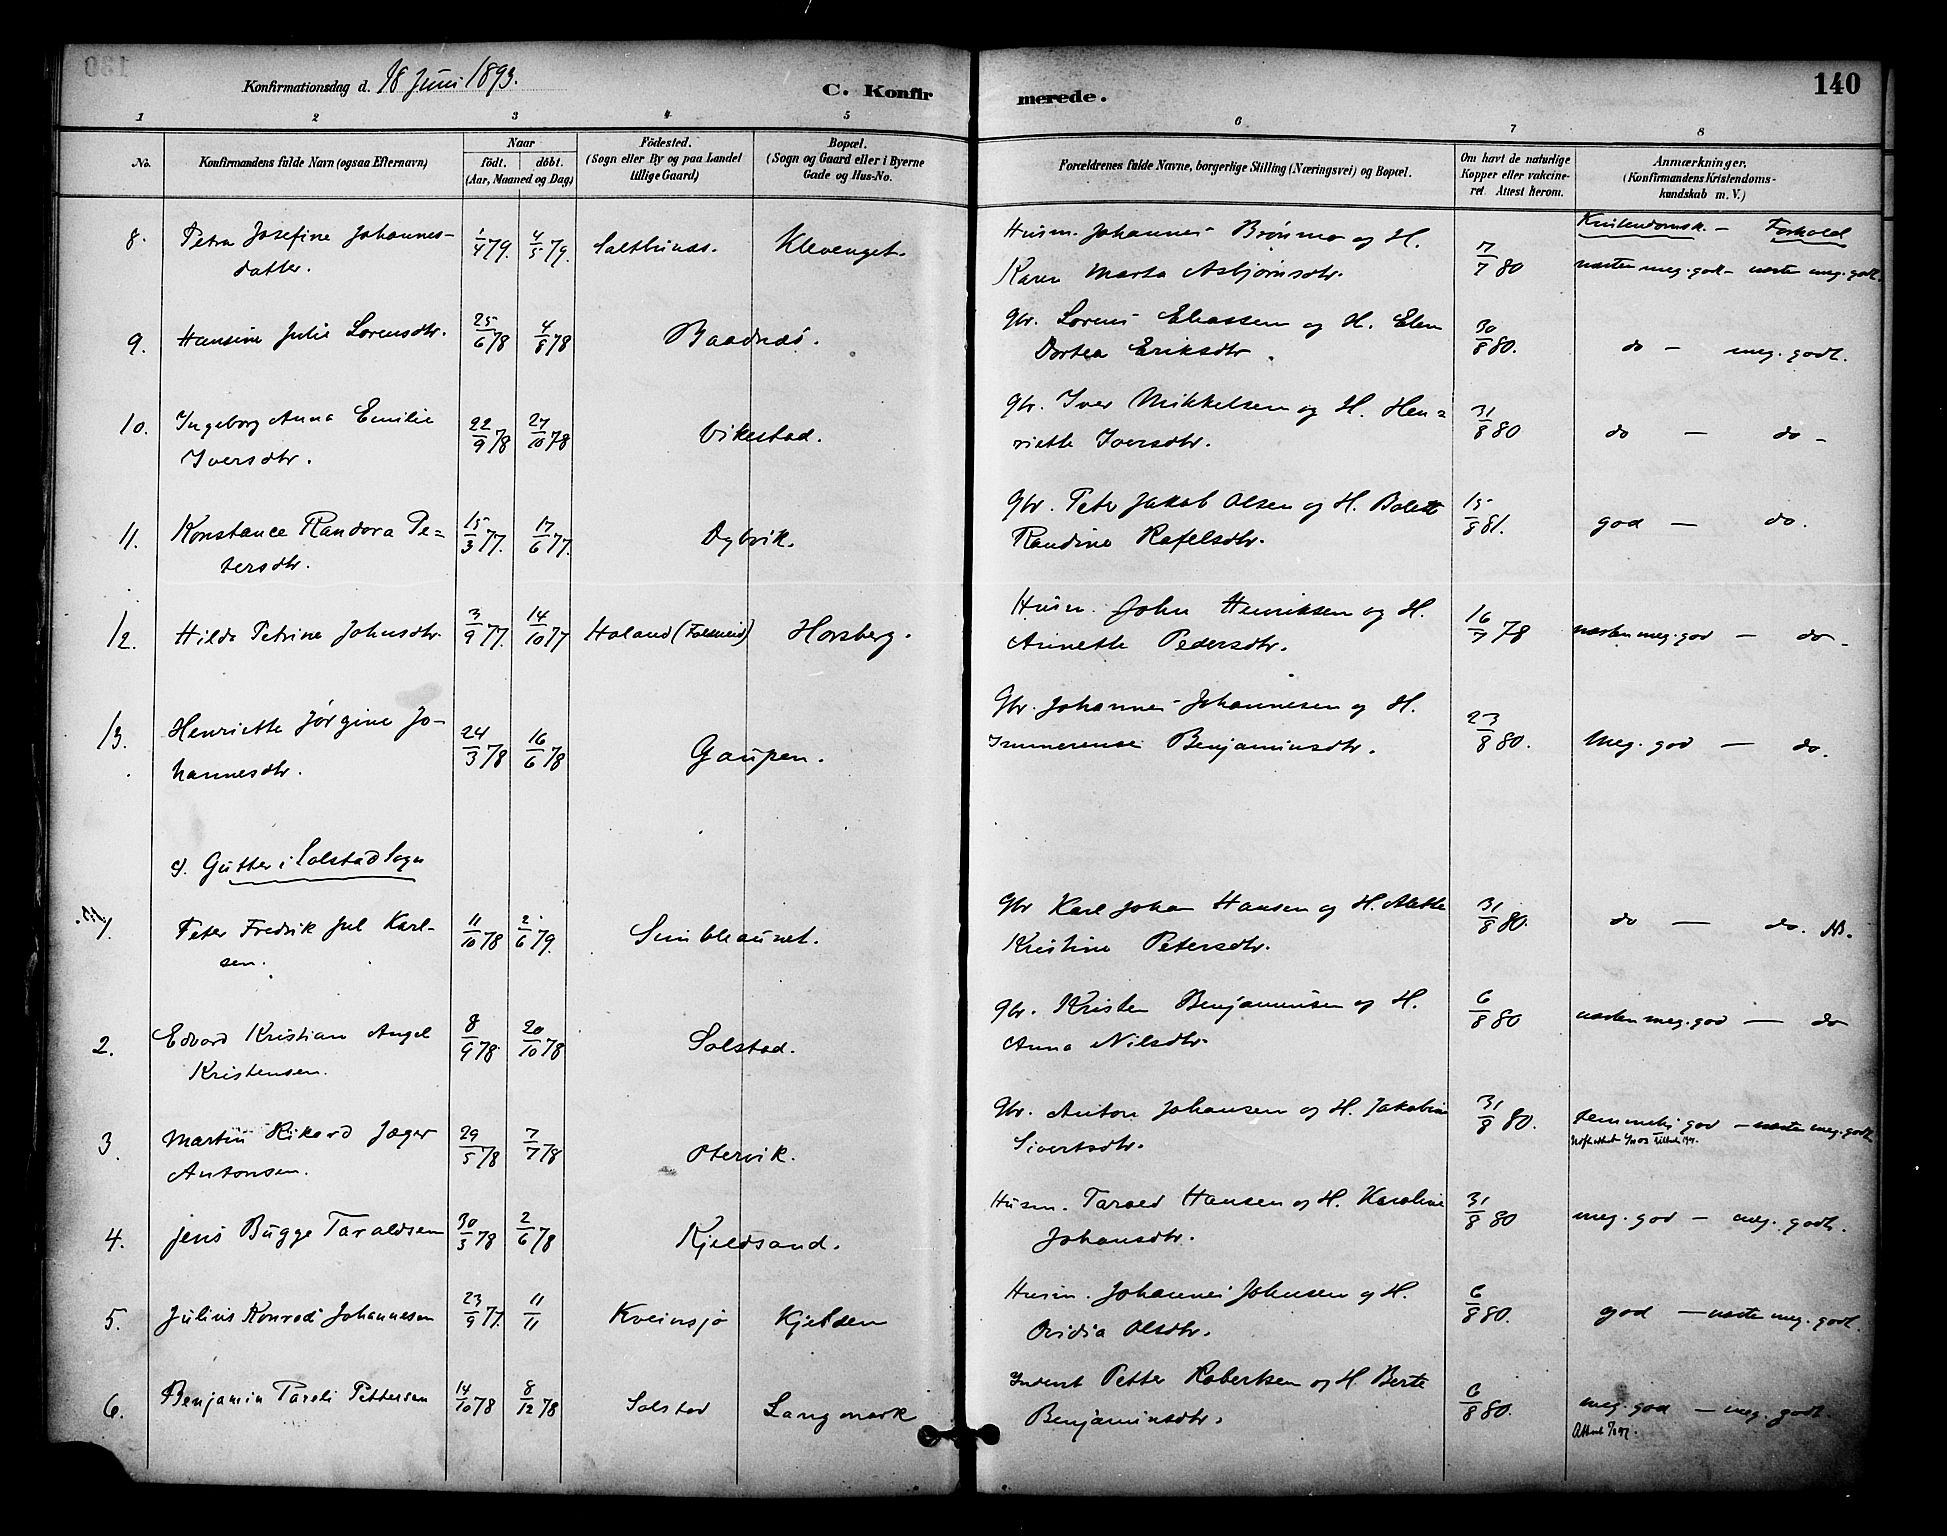 Konfirmationsdag d. 18 Juni 1893.
C. Konfirmerede.
140
1 2 3 4 5 6 7 8
No.
Konfirmandens fulde Navn (ogsaa Efternavn)
Naar
født. døbt.
(Aar, Maaned og Dag)
Fødested.
(Sogn eller By og paa Landet
tillige Gaard)
Bopæl.
(Sogn og Gaard eller i Byerne
Gade og Hus-No.
Forældrenes fulde Navne, borgerlige Stilling (Næringsvei) og Bopæl.
Om havt de naturlige
Kopper eller vakcine-
ret. Attest herom.
Anmærkninger.
(Konfirmandens Kristendoms-
kundskab m. V.)
Kristendomsk. – Forhold
8. Petra Josefine Johannes- 1/4 79. 4/5 79. Klevenget. Husm. Johannes Brønmo og H. 7/7 80 næsten meg. god – næsten meg. godt.
datter. Karen Marta Asbjørnsdtr.
9. Hansine Julie Lorensdtr. 25/6 78 4/8 78 Baadnæs. Gbr. Lorens Eliassen og H. Elen 30/8 80. do – meg. godt.
Dortea Eriksdtr.
10. Ingeborg Anna Emilie 22/9 78 27/10 78 Vikestad. Gbr. Iver Mikkelsen og H. Hen= 31/8 80 do – do –
Iversdtr. riette Iversdtr.
11. Konstance Randora Pe= 15/3 77. 17/6 77. Dybvik. Gbr. Peter Jakob Olsen og H. Bolette 15/8 81. god – do.
tersdtr. Randine Rafelsdtr.
12. Hilda Petrine Johnsdtr. 3/9 77. 14/10 77 Horsberg. Husm. John Henriksen og H. 16/7 78 næsten meg. god – do –
Annette Pedersdtr.
13. Henriette Jørgine Jo- 24/3 78 16/6 78 Gaupen. Gbr. Johannes Johannesen og H. 23/8 80. Meg. god – do.
hannesdtr. Immerense Benjaminsdtr.
Gutter i Solstad Sogn
1. Peter Fredrik Juel Karl- 11/10 78 2/6 79. Gbr Karl Johan Hansen og H. Alette 31/8 80. do – do. NB.
sen. Kristine Petersdtr.
2. Edvard Kristian Angel 8/9 78. 20/10 78 Solstad. Gbr. Kristen Benjaminsen og H. 6/8 80 næsten meg. god – do
Kristensen. Anna Nilsdtr.
3. Martin Rikard Jæger 29/5 78 7/7 78 Otervik. Gbr. Anton Johansen og H. Jakobine 31/8 80. temmelig god – næste meg. godt.
Antonsen. Sivertsdtr.
4. Jens Bugge Taraldsen 30/3 78 2/6 78 Kjeldsand. Husm. Tarald Hansen og H. Karoline 31/8 80 meg. god – meg. godt.
Johansdtr.
5. Julius Konrad Johannesen 23/9 77. 11/11 Kveinsjø Kjelden Husm. Johannes Johnsen og H. 6/8 80. god – næste meg. godt.
Ovidia Olsdtr.
6. Benjamin Pareli Pettersen 14/10 78 8/12 78 Solstad Langmark Inderst Petter Robertsen og H Berte 6/8 80. meg. god – meg. godt.
Benjaminsdtr.